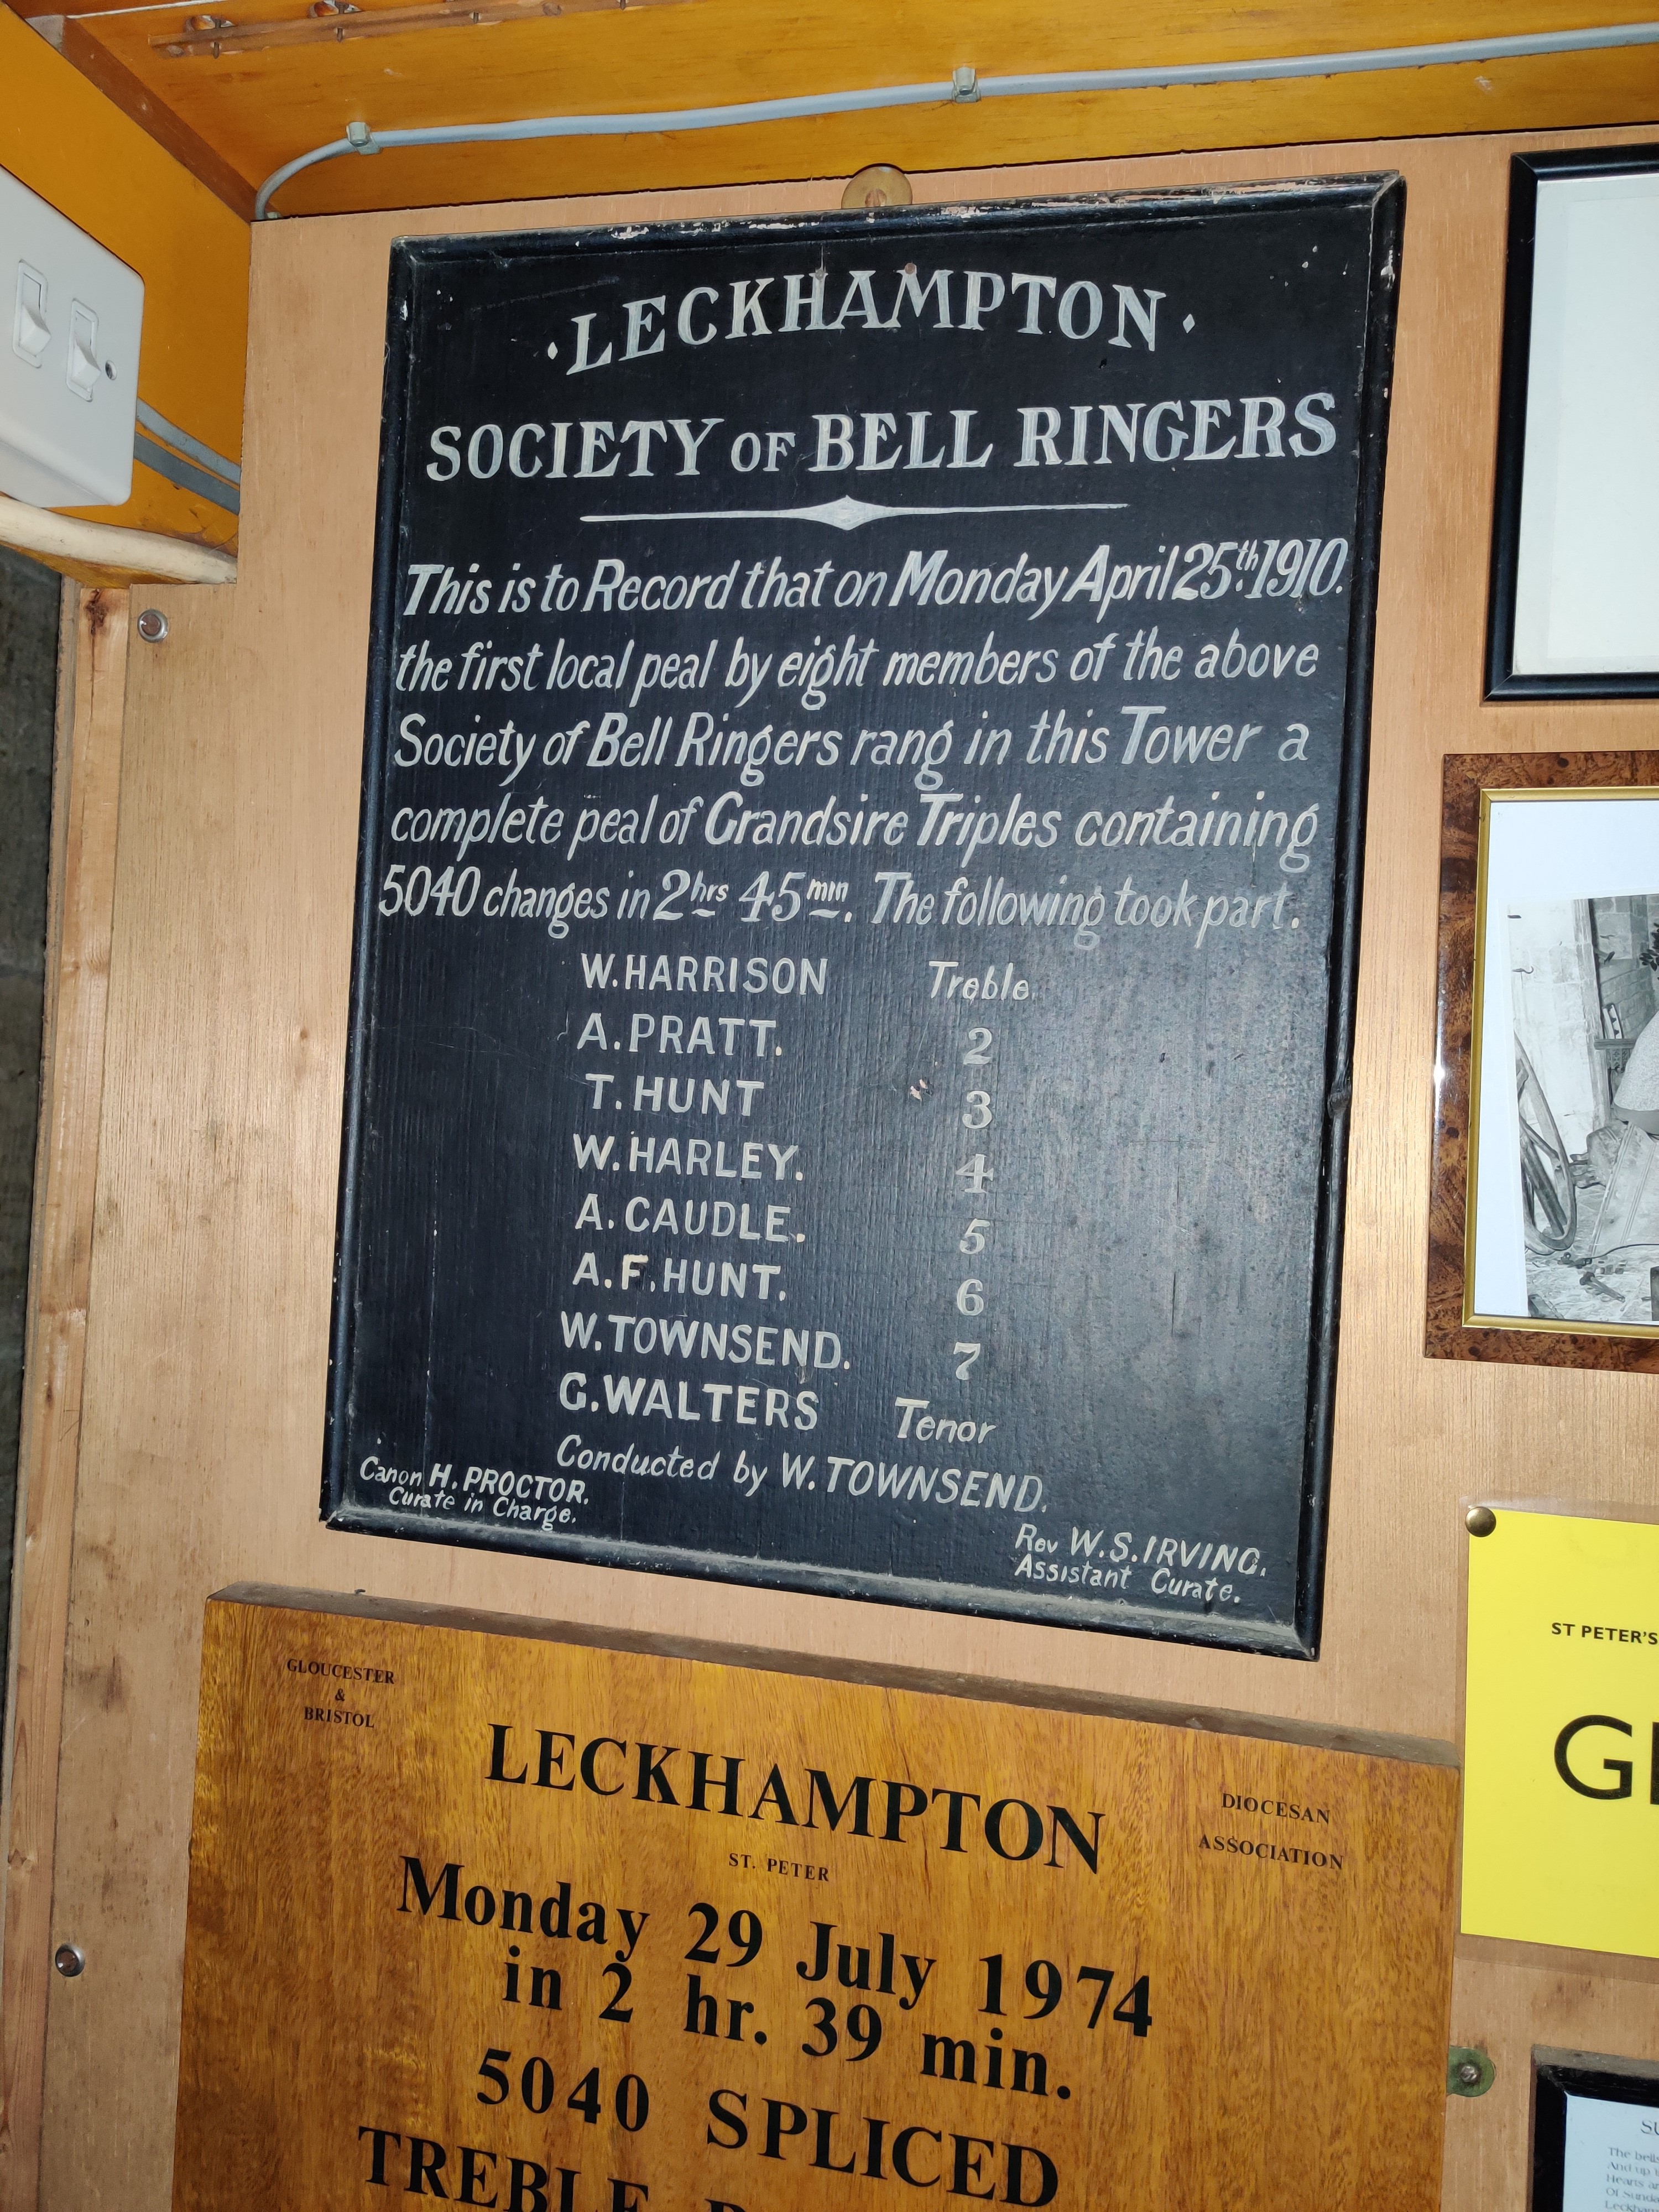 ·LECKHAMPTON·
SOCIETY OF BELL RINGERS
This is to Record that on Monday April 25th. 1910.
the first local peal by eight members of the above
Society of Bell Ringers rang in this Tower a
complete peal of Grandsire Triples containing
5040 changes in 2hrs 45min. The following took part.
W. HARRISON Treble.
A. PRATT. 2
T. HUNT 3
W. HARLEY. 4
A. CAUDLE. 5
A. F. HUNT. 6
W. TOWNSEND. 7
G. WALTERS Tenor
Conducted by W. TOWNSEND.
Canon H. PROCTOR.
Curate in Charge.
Rev W. S. IRVING.
Assistant Curate.
GLOUCESTER
&
BRISTOL
LECKHAMPTON
DIOCESAN
ASSOCIATION
ST. PETER
Monday 29 July 1974
in 2 hr. 39 min.
5040 SPLICED
TREBLE
ST PETER'S
The bells
And up
Hearts
Of Sunda
Leckham